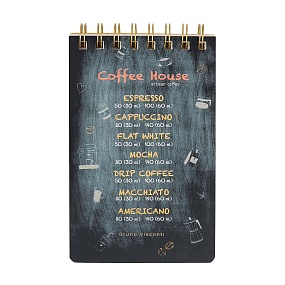 Coffee House
artisan coffee
ESPRESSO
50 (30 ml) 100 (60 ml)
CAPPUCCINO
80 (30 ml) 140 (60 ml)
FLAT WHITE
50 (30 ml) 100 (60 ml)
MOCHA
50 (30 ml) 100 (60 ml)
DRIP COFFEE
50 (30 ml) 100 (60 ml)
MACCHIATO
80 (30 ml) 140 (60 ml)
AMERICANO
80 (30 ml) 140 (60 ml)
Bruno Visconti